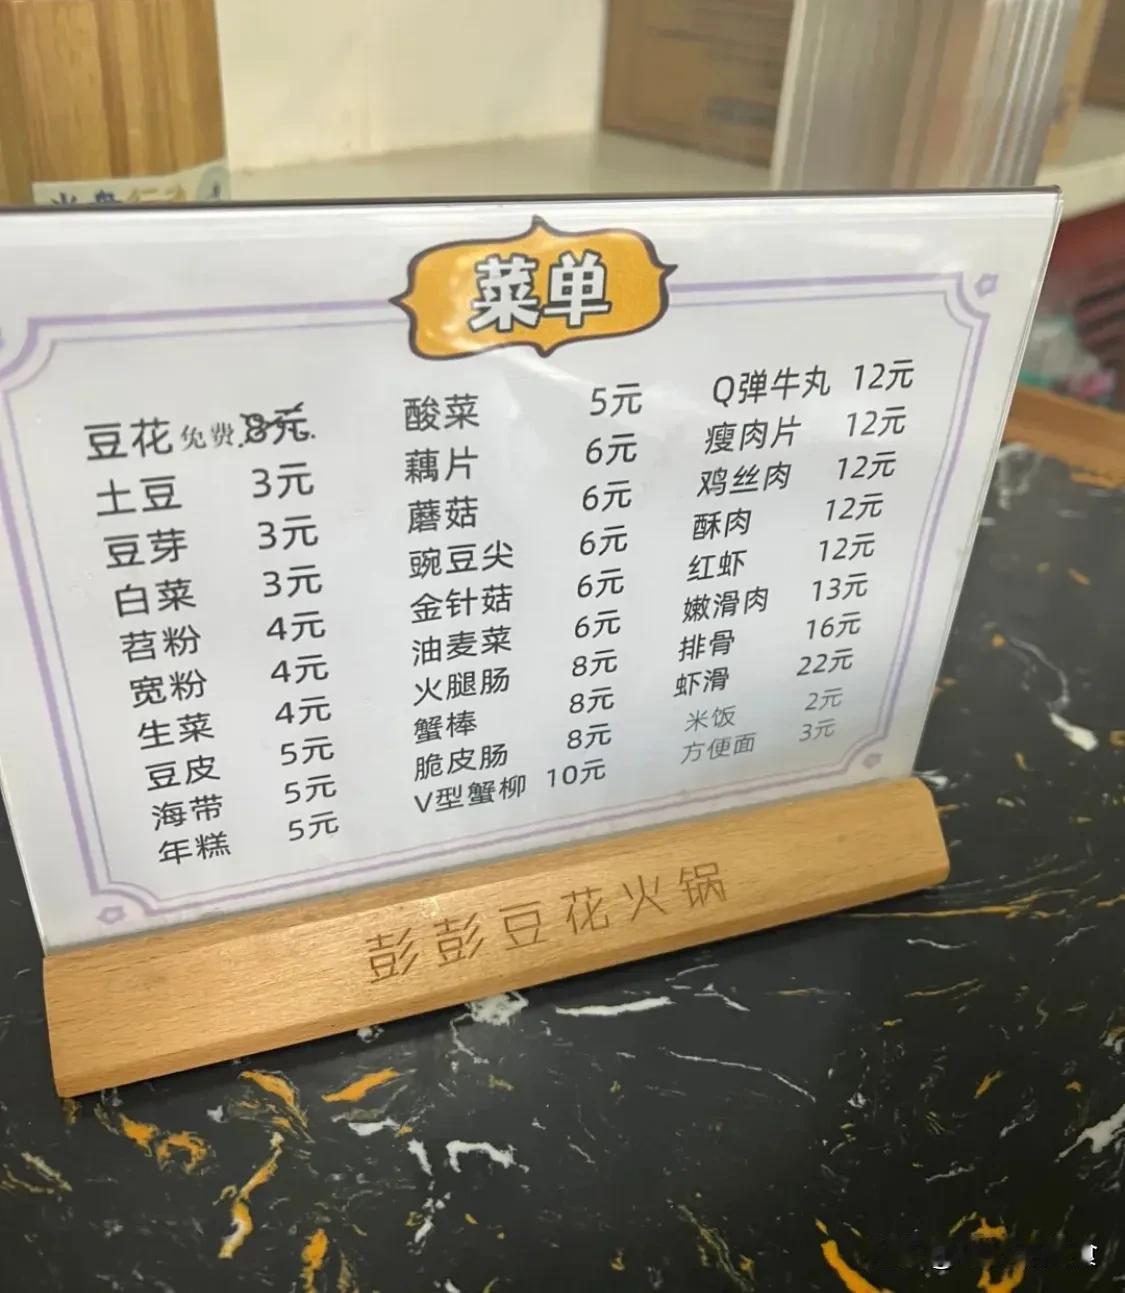 菜单
豆花 免费 8元
土豆 3元
豆芽 3元
白菜 3元
苕粉 4元
宽粉 4元
生菜 4元
豆皮 5元
海带 5元
年糕 5元
酸菜 5元
藕片 6元
蘑菇 6元
豌豆尖 6元
金针菇 6元
油麦菜 6元
火腿肠 8元
蟹棒 8元
脆皮肠 8元
V型蟹柳 10元
Q弹牛丸 12元
瘦肉片 12元
鸡丝肉 12元
酥肉 12元
红虾 12元
嫩滑肉 13元
排骨 16元
虾滑 22元
米饭 2元
方便面 3元
彭彭豆花火锅